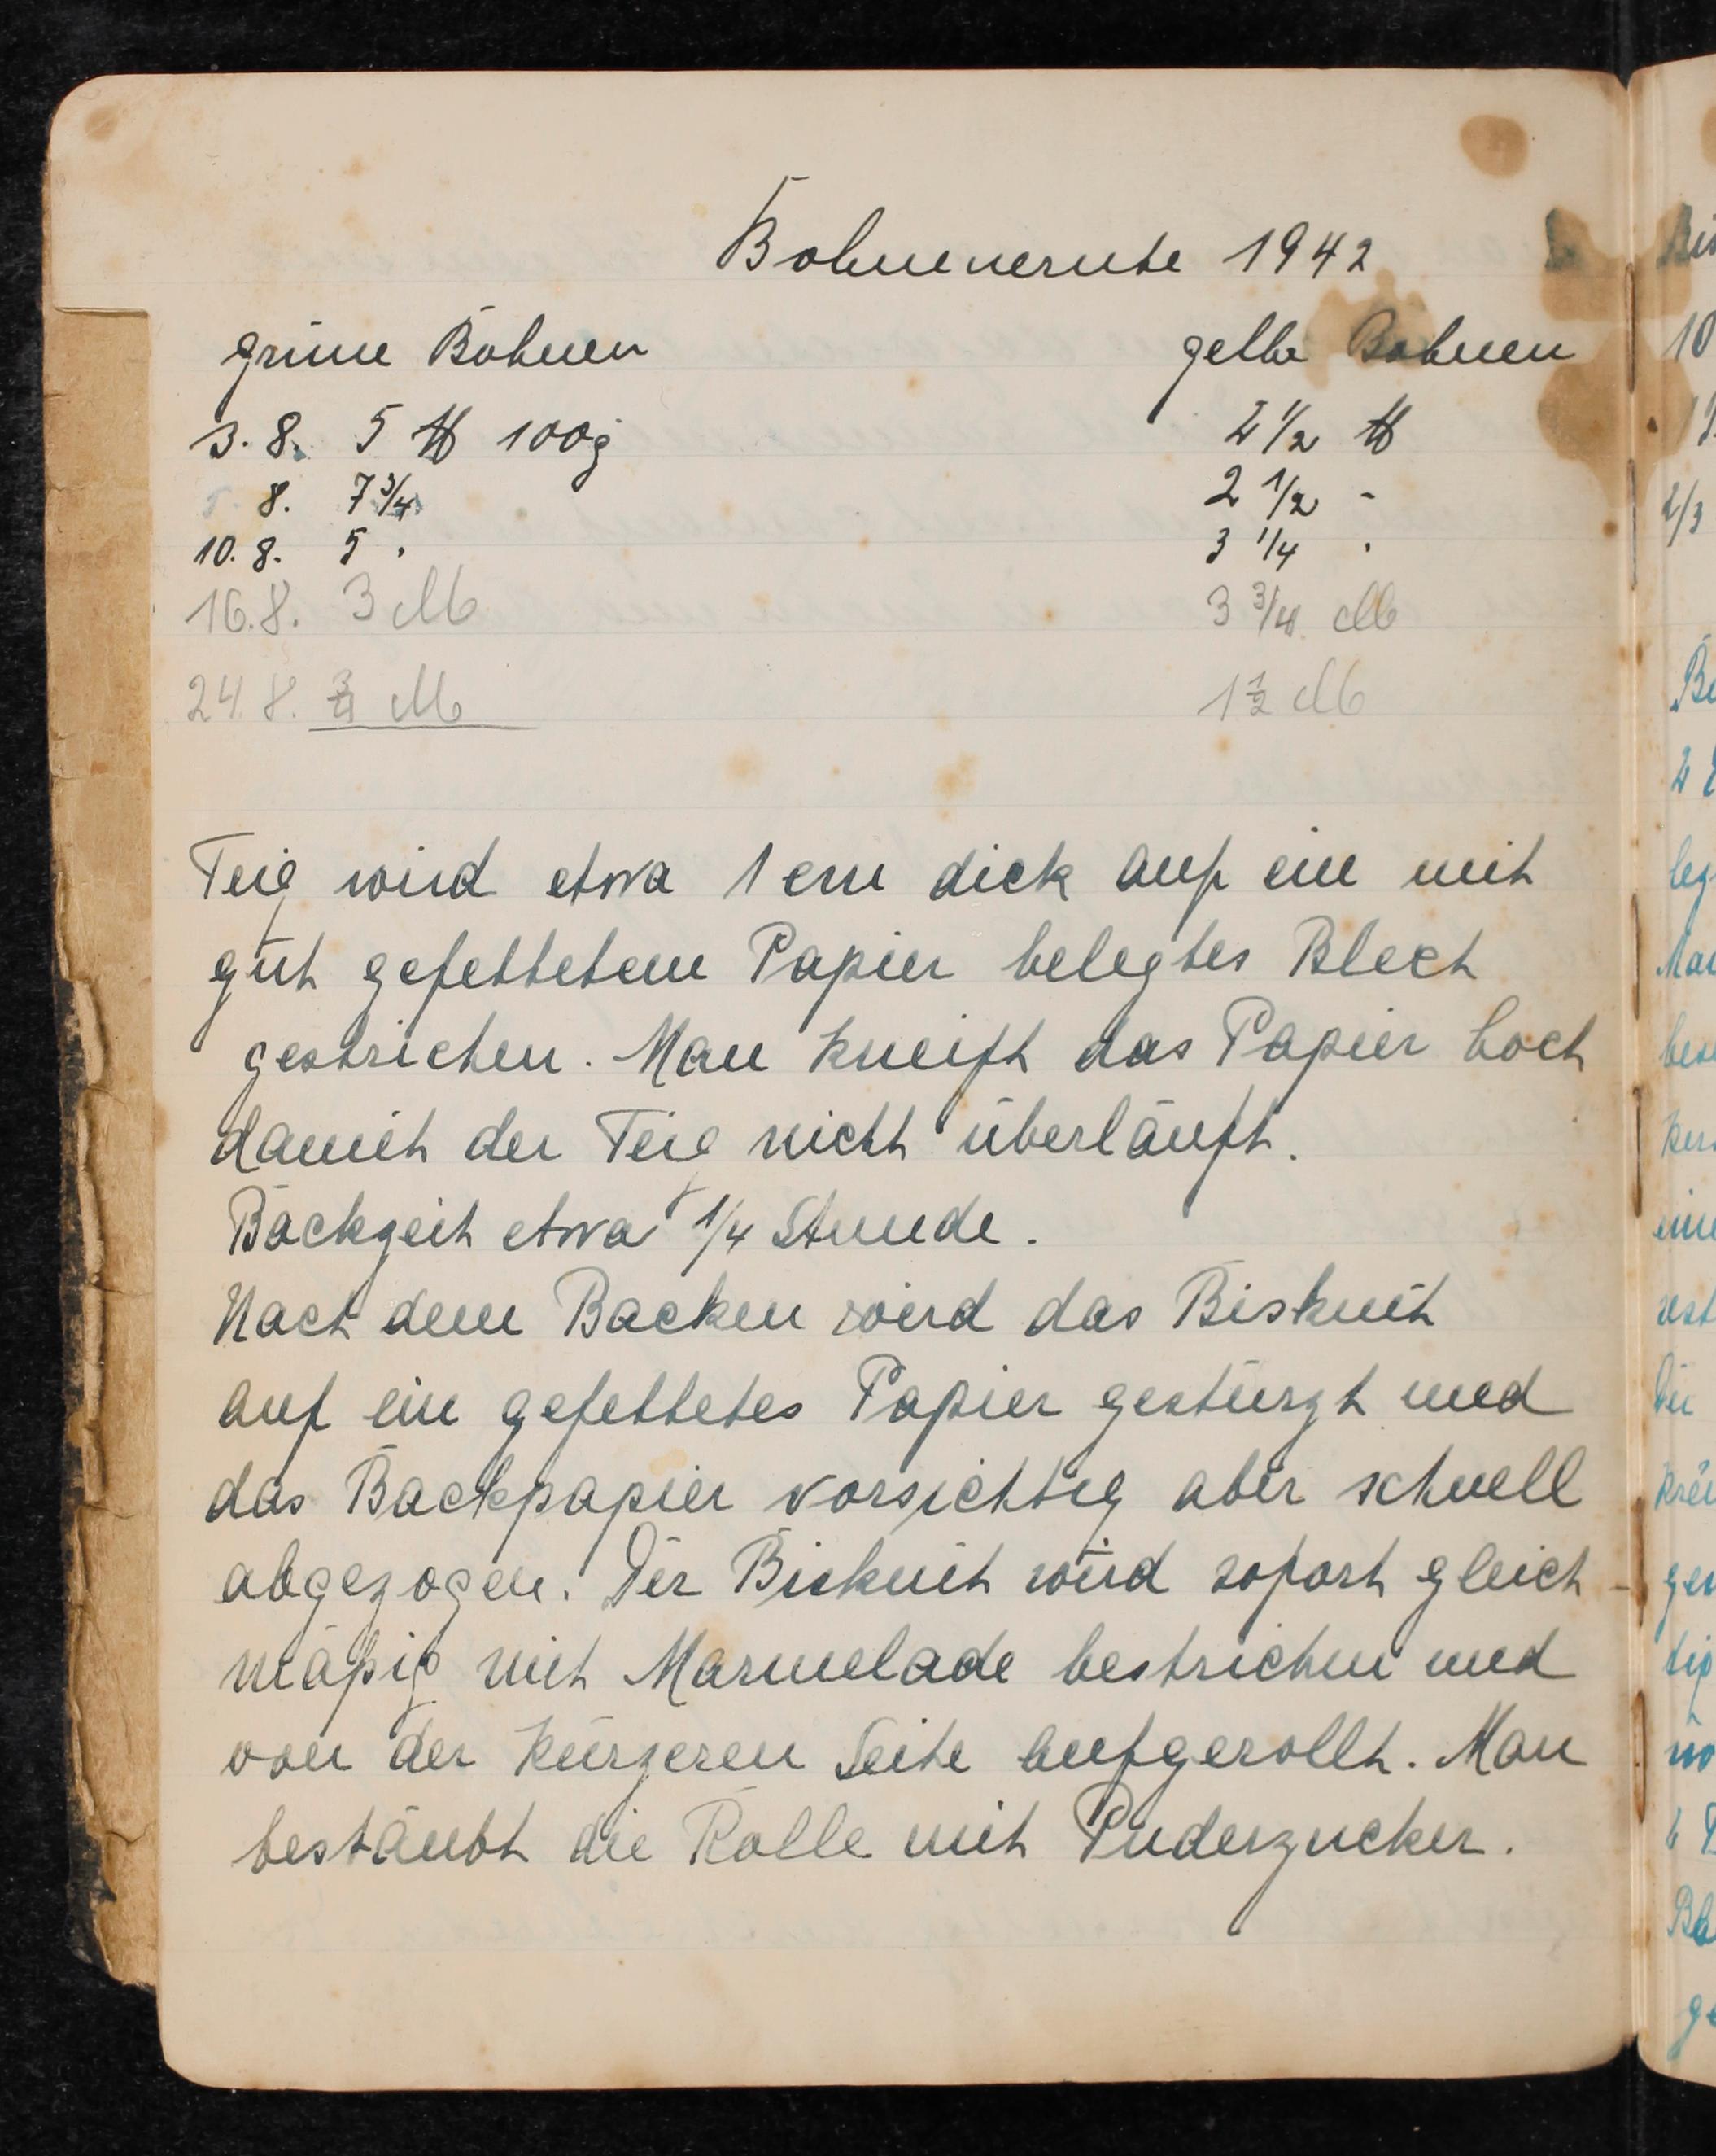 Bohnenernte 1942
grüne Bohnen gelbe Bohnen
3. 8. 5 ℔ 100g 4 1/2 ℔
8. 7 3/4 2 1/2 -
10. 8. 5 " 3 1/4 "
16. 8. 3 ℔ 3 3/4 ℔
24. 8. ℔ 1 1/2 ℔
Teig wird etwa 1 cm dick auf ein mit
gut gefettetem Papier belegtes Blech
gestrichen. Man kneift das Papier hoch
damit der Teig nicht überläuft.
Backzeit etwa 1/4 Stunde.
Nach dem Backen wird das Biskuit
auf ein gefettetes Papier gestürzt und
das Backpapier vorsichtig aber schnell
abgezogen. Der Biskuit wird sofort gleich-
mäßig mit Marmelade bestrichen und
von der kürzeren Seite aufgerollt. Man
bestäubt die Rolle mit Puderzucker.